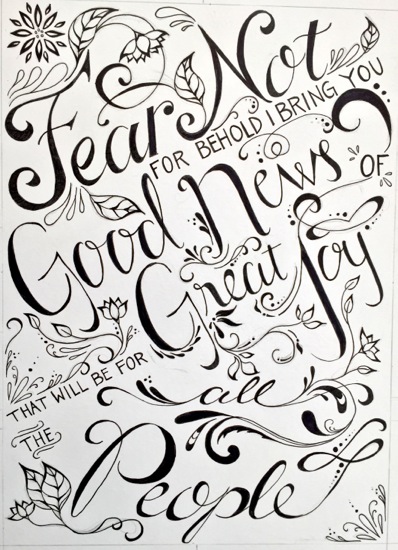 Fear Not
FOR BEHOLD I BRING YOU
Good News OF
Great Joy
THAT WILL BE FOR
all
THE
People